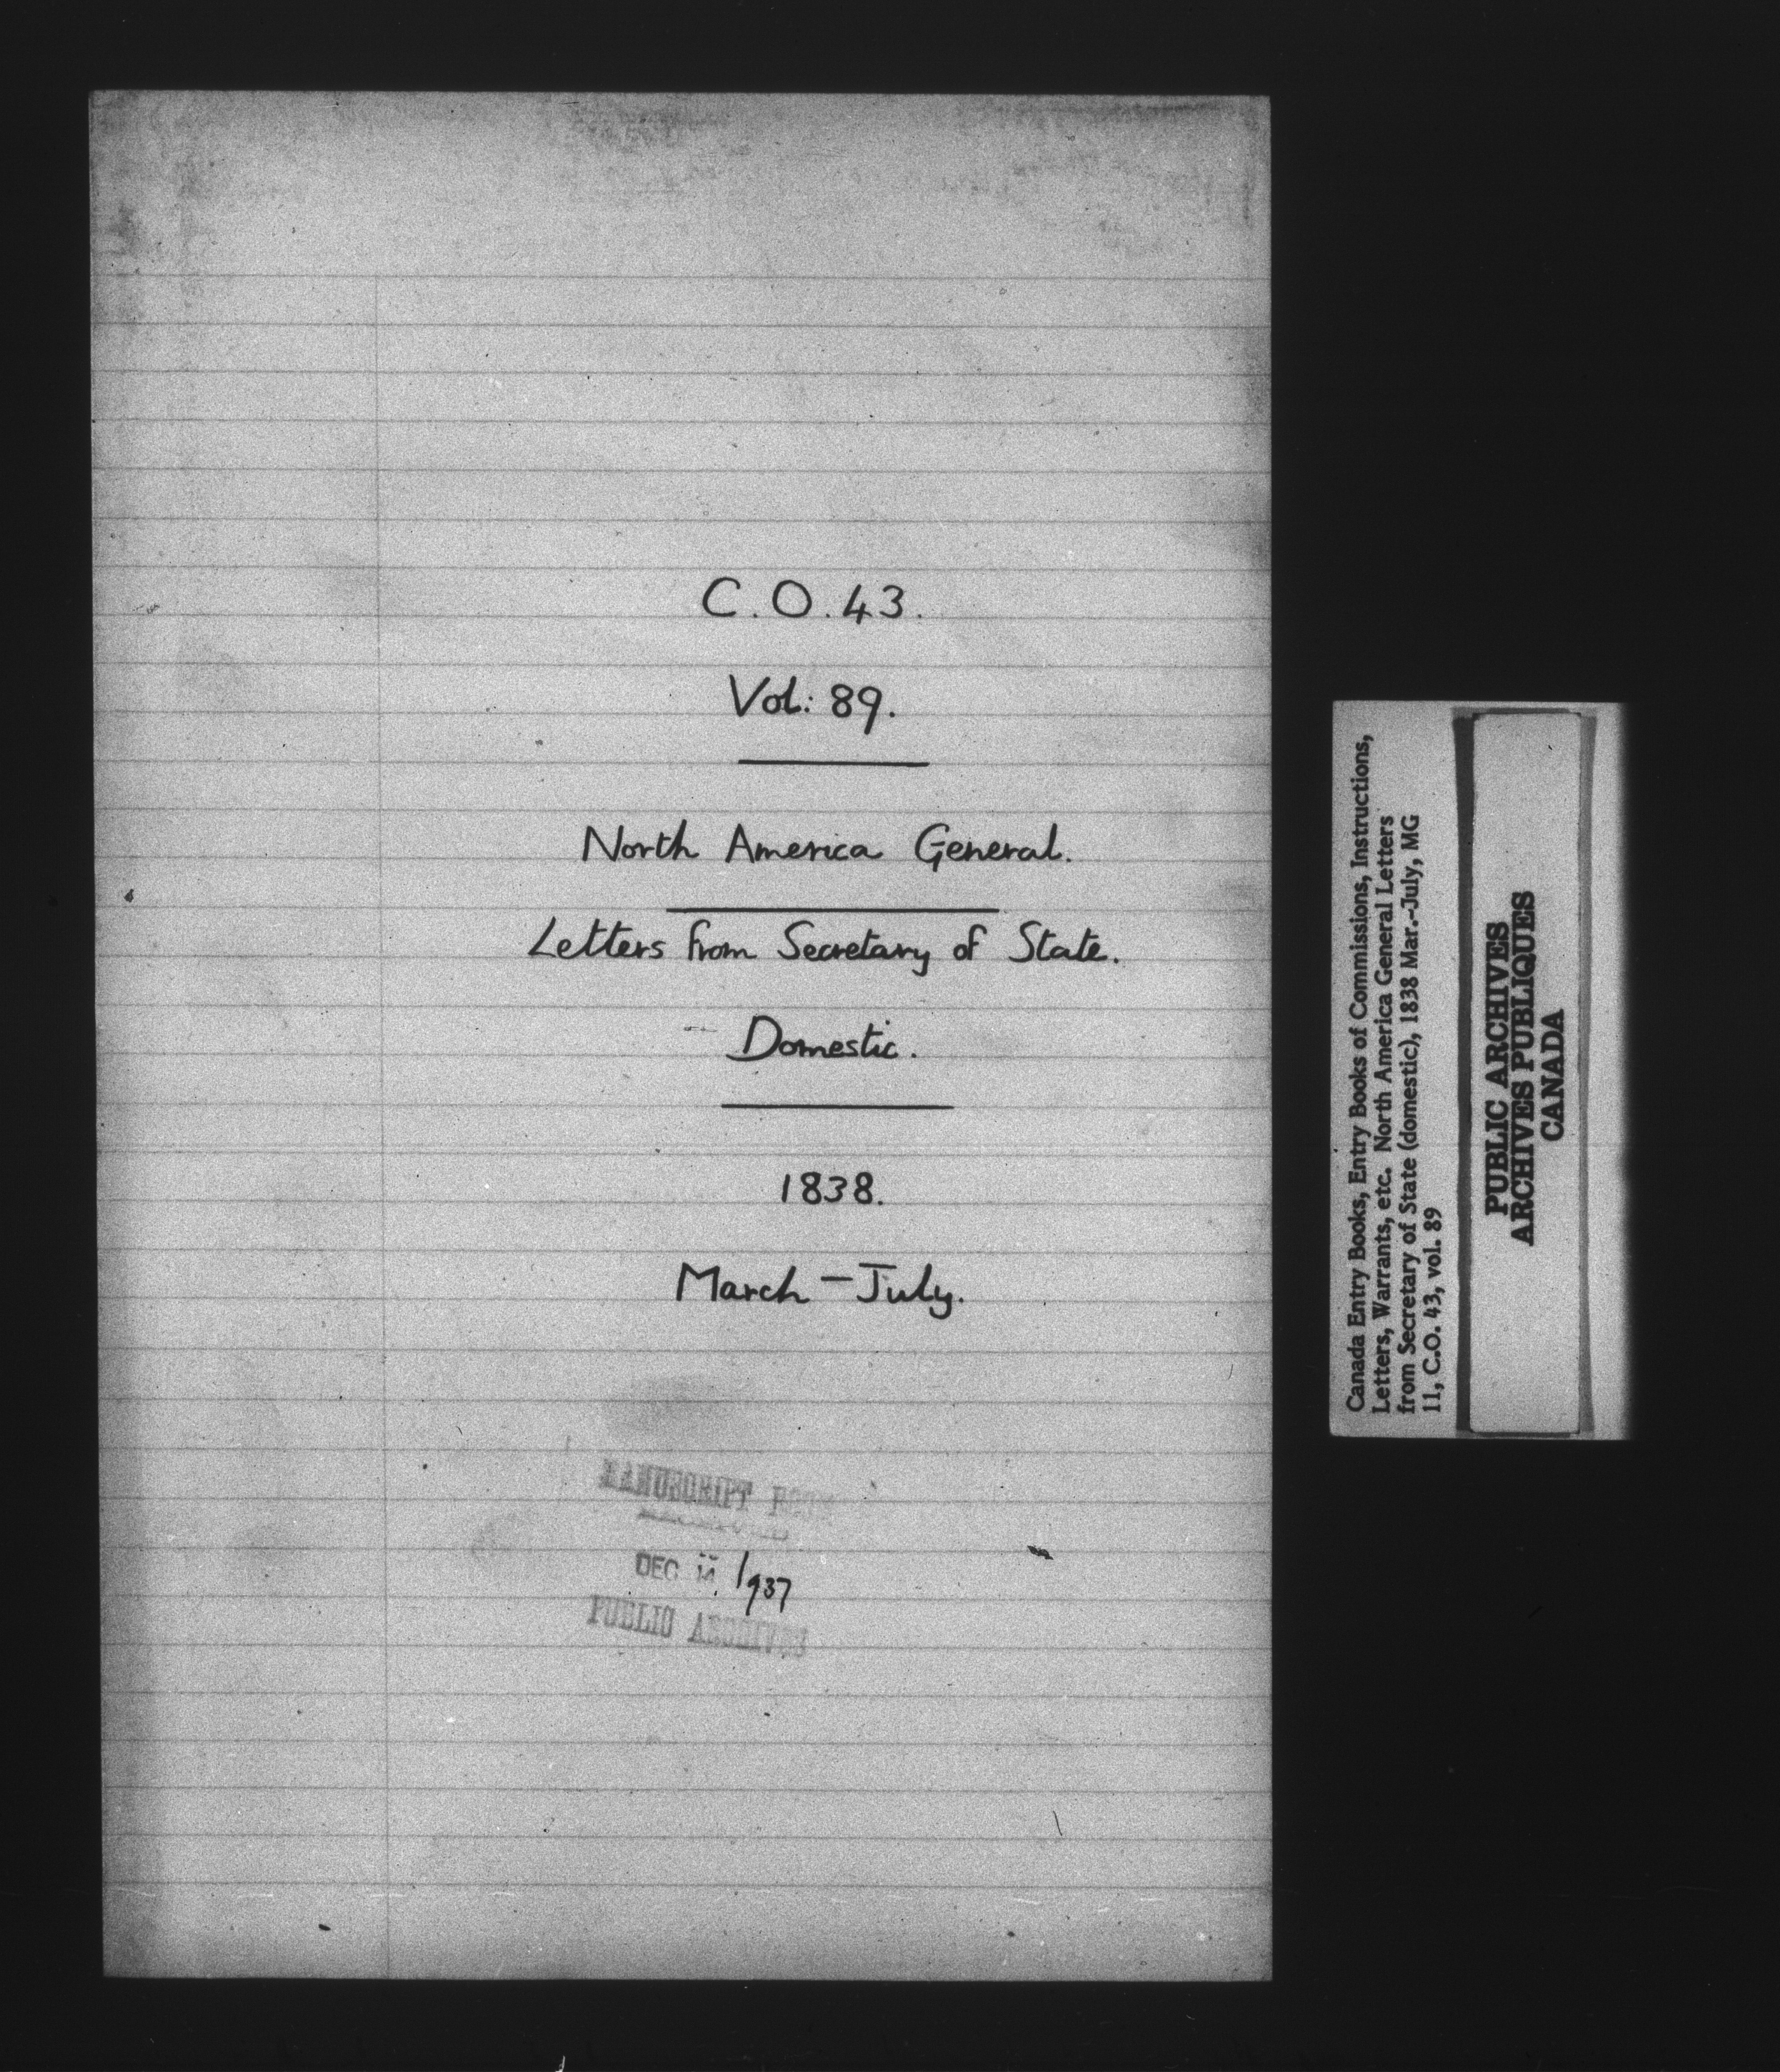 C.O.43.
Vol: 89.
North America General.
Letters from Secretary of State.
Domestic.
1838.
March - July.
MANUSCRIPT ROOM
DEC 1937
PUBLIC ARCHIVES
Canada Entry Books, Entry Books of Commissions, Instructions,
Letters, Warrants, etc. North America General Letters
from Secretary of State (domestic), 1838 Mar.-July, MG
11, C.O. 43, vol. 89
PUBLIC ARCHIVES
ARCHIVES PUBLIQUES
CANADA